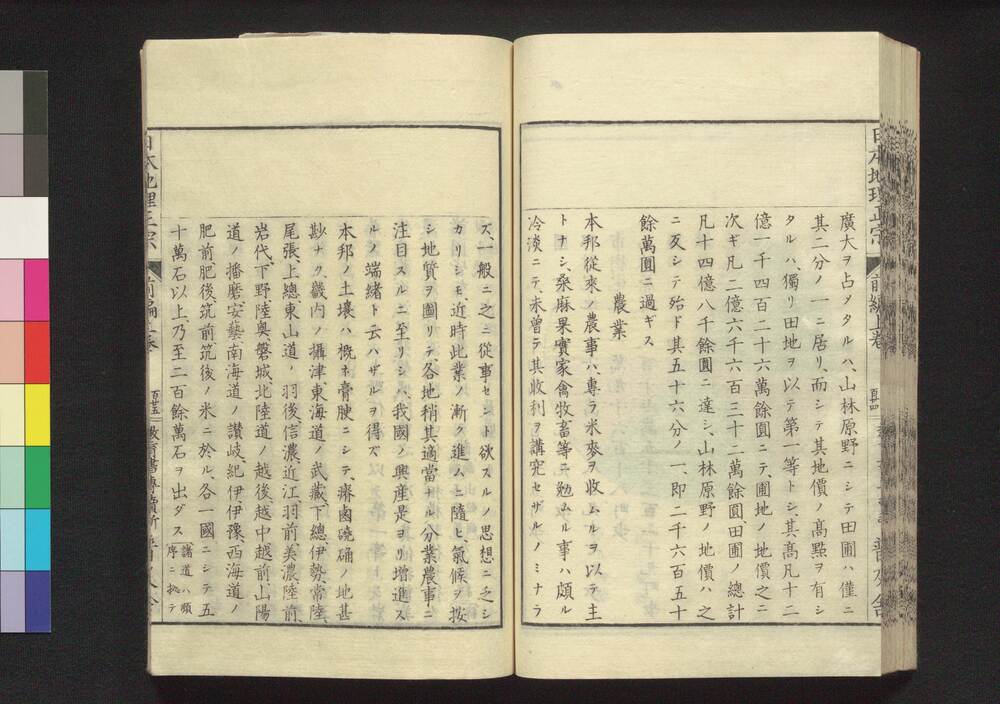 廣大ヲ占タタルハ、山林原野ニシテ田圃ハ僅ニ
其二分ノ一ニ居リ、而シテ其地價ノ髙點ヲ有シ
タルハ、獨リ田地ヲ以テ第一等トシ、其髙凡十二
億一千四百二十六萬餘圓ニテ、圃地ノ地價之ニ
次ギ凡二億六千六百三十二萬餘圓、田圃ノ總計
凡十四億八千餘圓ニ達シ、山林原野ノ地價ハ之
ニ反シテ殆ド其五十六分ノ一、即二千六百五十
餘萬圓ニ過ギス
農業
本邦従來ノ農事ハ、專ラ米麥ヲ收ムルヲ以テ主
トナシ、桑麻果實家禽牧畜等ニ勉ムル事ハ頗ル
冷淡ニテ、未曽テ其收利ヲ講究セザルノミナラ
ズ、一般ニ之ニ從事セント欲スルノ思想ニ乏シ
カリシモ、近時此業ノ漸ク進ムニ隨ヒ、氣候ヲ按
シ地質ヲ圖リテ、各地稍其適當ナル分業農事ニ
注目スルニ至リシハ、我國ノ興産是ヨリ増進ス
ルノ端緒ト云ハザルヲ得ズ
本邦ノ土壤ハ概ネ膏腴ニシテ、瘠鹵磽确ノ地甚
尠ナク、畿内ノ攝津、東海道ノ武藏、下總、伊勢、常陸、
尾張、上總、東山道ノ羽後、信濃、近江、羽前、美濃、陸前、
岩代、下野、陸奥、磐城、北陸道ノ越後、越中、越前、山陽
道ノ播磨、安藝、南海道ノ讚岐、紀伊、伊豫、西海道ノ
肥前、肥後、筑前、筑後ノ米ニ於ル、各一國ニシテ五
十萬石以上、乃至二百餘萬石ヲ出ダス 諸道ハ順
序ニ拠テ
日本地理正宗 前編上卷
日本地理正宗 前編上卷